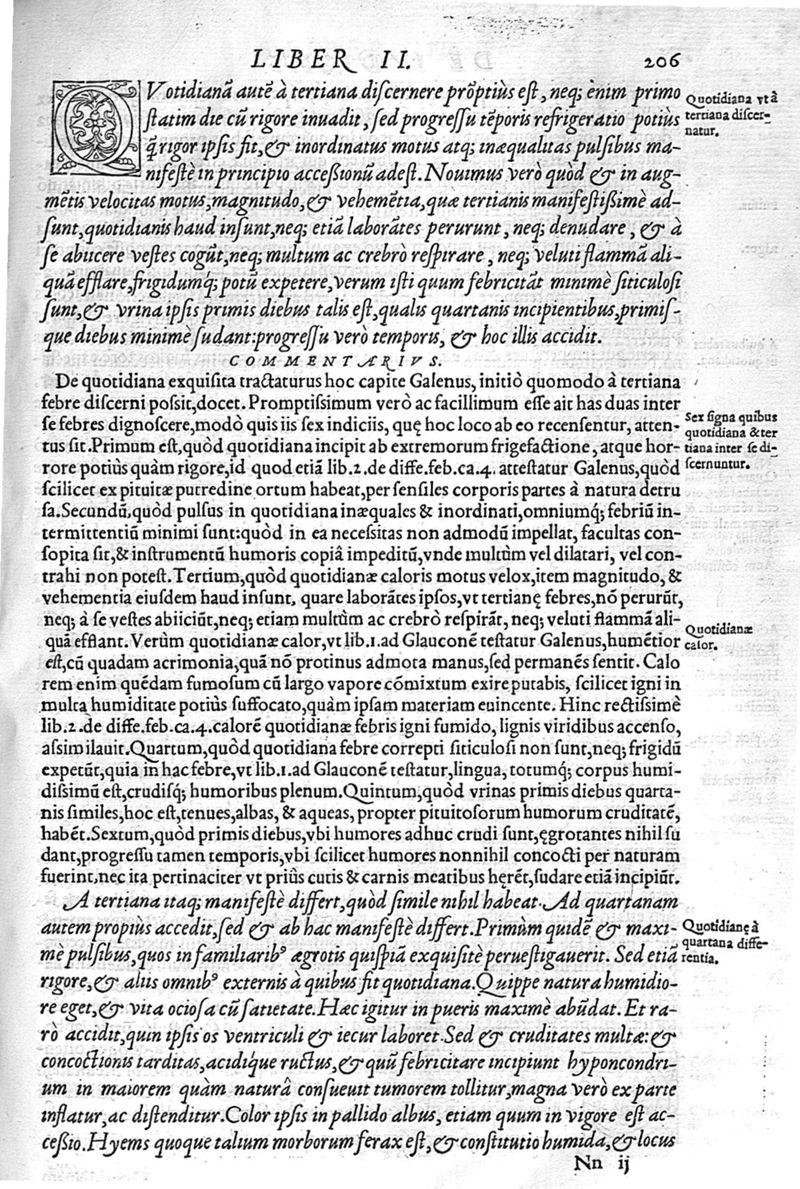 LIBER II. 206
QVotidianā autē à tertiana discernere prõptiùs est, neq; ènim primo
statim die cū rigore inuadit, sed progressu tēporis refrigeratio potiùs
q̄ rigor ipsis fit, & inordinatus motus atq; inæqualitas pulsibus ma-
nifestè in principio accessionū adest. Nouimus verò quòd & in aug-
mētis velocitas motus, magnitudo, & vehemētia, quæ tertianis manifestissimè ad-
sunt, quotidianis haud insunt, neq; etiā laborātes perurunt, neq; denudare, & à
se abiicere vestes cogūt, neq; multum ac crebrò respirare, neq; veluti flammā ali-
quā efflare, frigidumq́; potū expetere, verum isti quum febricitāt minimè siticulosi
sunt, & vrina ipsis primis diebus talis est, qualis quartanis incipientibus, primis-
que diebus minimè sudant: progressu verò temporis, & hoc illis accidit.
Quotidiana vt à
tertiana discer-
natur.
COMMENTARIVS.
De quotidiana exquisita tractaturus hoc capite Galenus, initiò quomodo à tertiana
febre discerni possit, docet. Promptissimum verò ac facillimum esse ait has duas inter
se febres dignoscere, modò quis iis sex indiciis, quę hoc loco ab eo recensentur, atten-
tus sit. Primum est, quòd quotidiana incipit ab extremorum frigefactione, atque hor-
rore potiùs quàm rigore, id quod etiā lib. 2. de diffe. feb. ca. 4. attestatur Galenus, quòd
scilicet ex pituitæ putredine ortum habeat, per sensiles corporis partes à natura detru
sa. Secundū, quòd pulsus in quotidiana inæquales & inordinati, omniumq́; febriū in-
termittentiū minimi sunt: quòd in ea necessitas non admodū impellat, facultas con-
sopita sit, & instrumentū humoris copiâ impeditū, vnde multùm vel dilatari, vel con-
trahi non potest. Tertium, quòd quotidianæ caloris motus velox, item magnitudo, &
vehementia eiusdem haud insunt, quare laborātes ipsos, vt tertianę febres, nō perurūt,
neq; à se vestes abiiciūt, neq; etiam multùm ac crebrò respirāt, neq; veluti flammā ali-
quā efflant. Verùm quotidianæ calor, vt lib. 1. ad Glauconē testatur Galenus, humētior
est, cū quadam acrimonia, quā nō protinus admota manus, sed permanēs sentit. Calo
rem enim quēdam fumosum cū largo vapore cōmixtum exire putabis, scilicet igni in
multa humiditate potiùs suffocato, quàm ipsam materiam euincente. Hinc rectissimè
lib. 2. de diffe. feb. ca. 4. calorē quotidianæ febris igni fumido, lignis viridibus accenso,
assimilauit. Quartum, quòd quotidiana febre correpti siticulosi non sunt, neq; frigidū
expetūt, quia in hac febre, vt lib. 1. ad Glauconē testatur, lingua, totumq́; corpus humi-
dissimū est, crudisq́; humoribus plenum. Quintum, quòd vrinas primis diebus quarta-
nis similes, hoc est, tenues, albas, & aqueas, propter pituitosorum humorum cruditatē,
habēt. Sextum, quòd primis diebus, vbi humores adhuc crudi sunt, ęgrotantes nihil su
dant, progressu tamen temporis, vbi scilicet humores nonnihil concocti per naturam
fuerint, nec ita pertinaciter vt priùs cutis & carnis meatibus hęrēt, sudare etiā incipiūt.
Sex signa quibus
quotidiana & ter
tiana inter se di-
scernuntur.
Quotidianæ
calor.
A tertiana itaq; manifestè differt, quòd simile nihil habeat. Ad quartanam
autem propiùs accedit, sed & ab hac manifestè differt. Primùm quidē & maxi-
mè pulsibus, quos in familiarib⁹ ægrotis quispiā exquisitè peruestigauerit. Sed etiā
rigore, & aliis omnib⁹ externis à quibus fit quotidiana. Quippe natura humidio-
re eget, & vita ociosa cū satietate. Hæc igitur in pueris maximè abūdat. Et ra-
rò accidit, quin ipsis os ventriculi & iecur laboret. Sed & cruditates multæ: &
concoctionis tarditas, acidíque ructus, & quū febricitare incipiunt hypochondri-
um in maiorem quàm naturâ consueuit tumorem tollitur, magna verò ex parte
inflatur, ac distenditur. Color ipsis in pallido albus, etiam quum in vigore est ac-
cessio. Hyems quoque talium morborum ferax est, & constitutio humida, & locus
Quotidianę à
quartana diffe-
rentia.
Nn ij